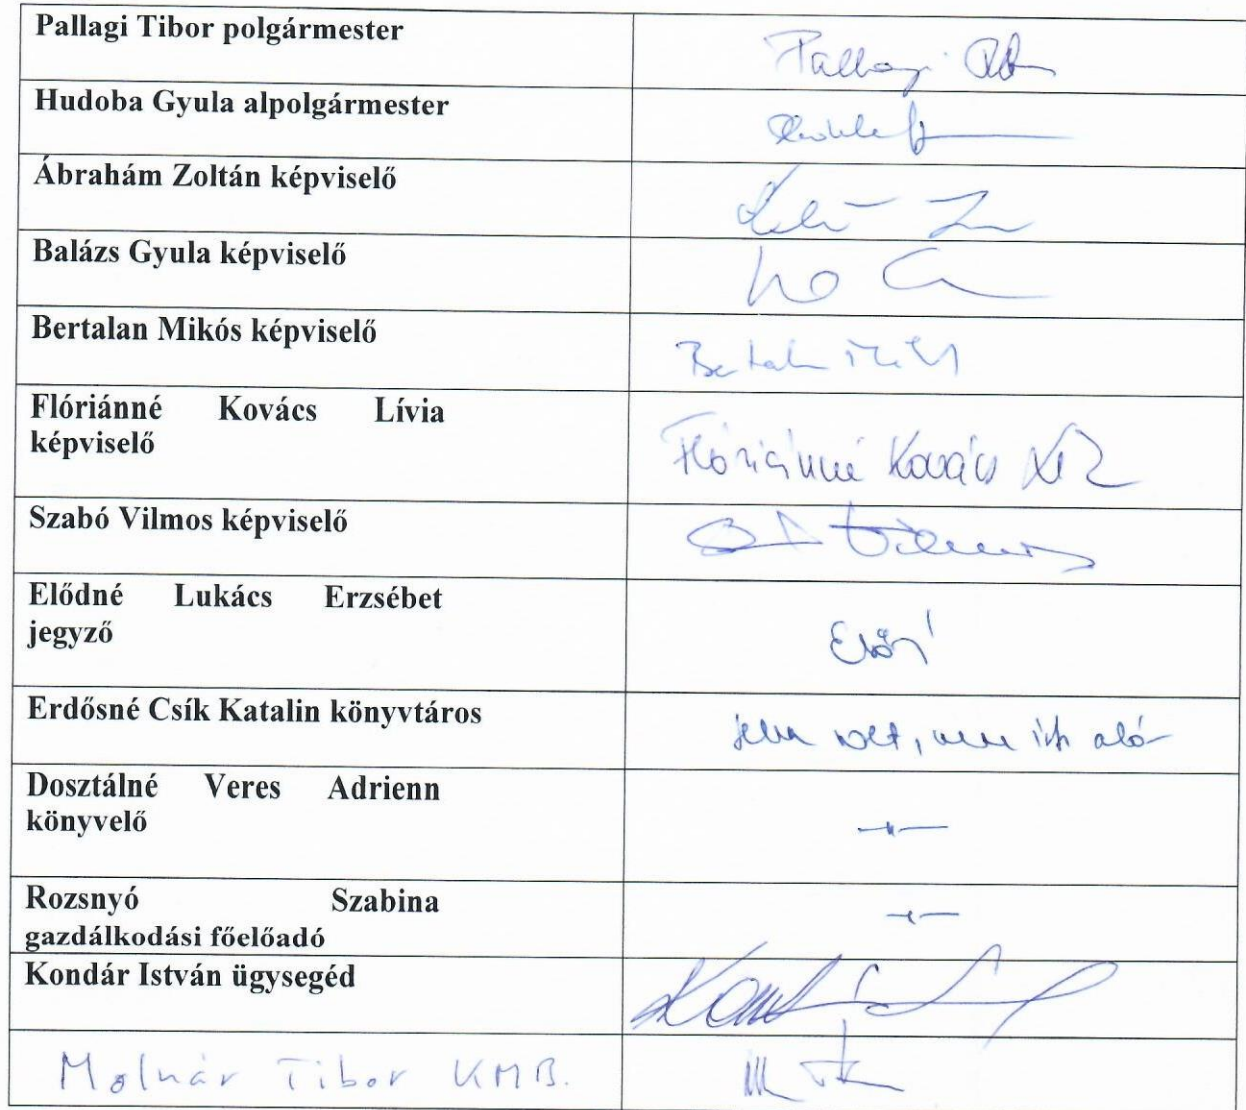 Pallagi Tibor polgármester
Pallagi
Hudoba Gyula alpolgármester
Ábrahám Zoltán képviselő
Balázs Gyula képviselő
Bertalan Mikós képviselő
Flóriánné Kovács Lívia
képviselő
Flóriánné Kovács
Szabó Vilmos képviselő
Elődné Lukács Erzsébet
jegyző
Erdősné Csík Katalin könyvtáros
jelen volt, nem írt alá
Dosztálné Veres Adrienn
könyvelő
-"-
Rozsnyó Szabina
gazdálkodási főelőadó
-"-
Kondár István ügysegéd
Molnár Tibor KMB.